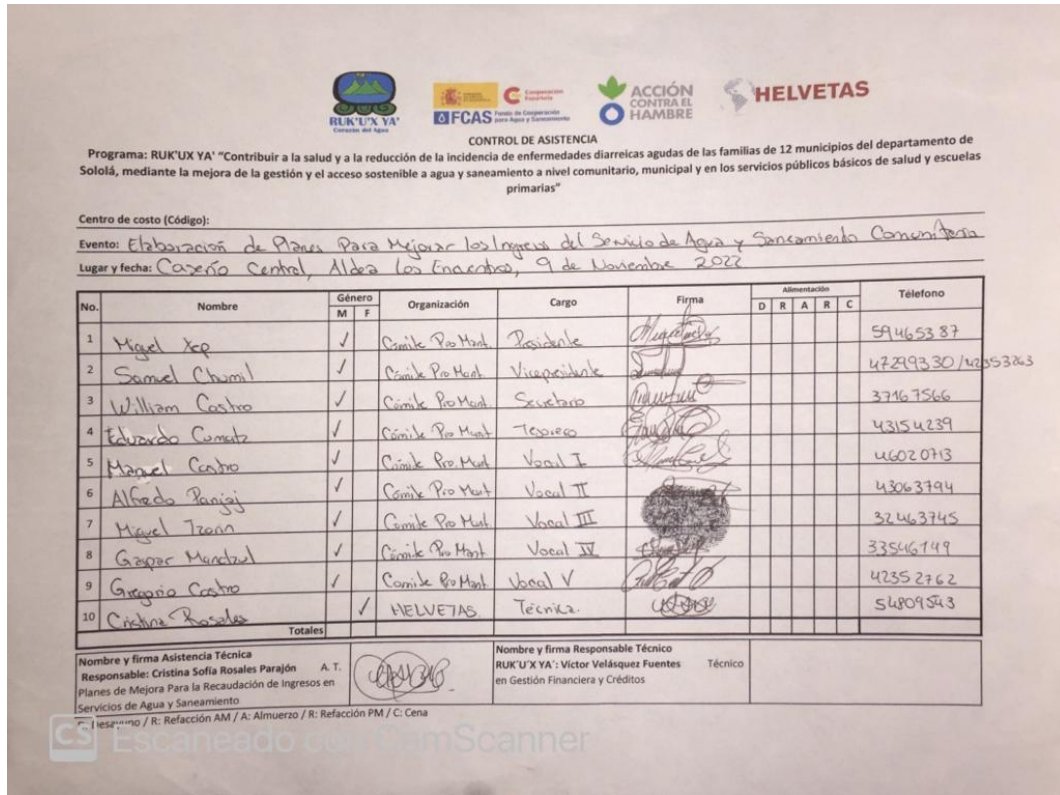 RUK'UX YA'
Corazón del Agua
Cooperación Española
FCAS Fondo de Cooperación para Agua y Saneamiento
ACCIÓN CONTRA EL HAMBRE
HELVETAS
CONTROL DE ASISTENCIA
Programa: RUK'UX YA' "Contribuir a la salud y a la reducción de la incidencia de enfermedades diarreicas agudas de las familias de 12 municipios del departamento de
Sololá, mediante la mejora de la gestión y el acceso sostenible a agua y saneamiento a nivel comunitario, municipal y en los servicios públicos básicos de salud y escuelas
primarias"
Centro de costo (Código):
Evento: Elaboración de Planes Para Mejorar los Ingresos del Servicio de Agua y Saneamiento Comunitario
Lugar y fecha: Caserío Central, Aldea Los Encuentros, 9 de Noviembre 2022
No. Nombre Género Organización Cargo Firma Alimentación Télefono
M F D R A R C
1 Miguel Xep ✓ Comite Pro Mant. Presidente 59465387
2 Samuel Chumil ✓ Cómite Pro Mant. Vicepresidente 47299330 /42353263
3 William Castro ✓ Cómite Pro Mant. Secretario 37167566
4 Eduardo Cumatz ✓ Cómite Pro Mant Tesorero 43154239
5 Manuel Castro ✓ Cómite Pro. Mant Vocal I 46020713
6 Alfredo Panjoj ✓ Cómite Pro Mant Vocal II 43063794
7 Miguel ✓ Comite Pro Mant. Vocal III 32463745
8 Gaspar ✓ Cómite Pro Mant. Vocal IV 33546149
9 Gregorio Castro ✓ Comite Pro Mant. Vocal V 42352762
10 Cristina Rosales ✓ HELVETAS Técnica. 54809543
Totales
Nombre y firma Asistencia Técnica
Responsable: Cristina Sofía Rosales Parajón A. T.
Planes de Mejora Para la Recaudación de Ingresos en
Servicios de Agua y Saneamiento
Nombre y firma Responsable Técnico
RUK'U'X YA': Víctor Velásquez Fuentes Técnico
en Gestión Financiera y Créditos
Desayuno / R: Refacción AM / A: Almuerzo / R: Refacción PM / C: Cena
CS Escaneado con CamScanner